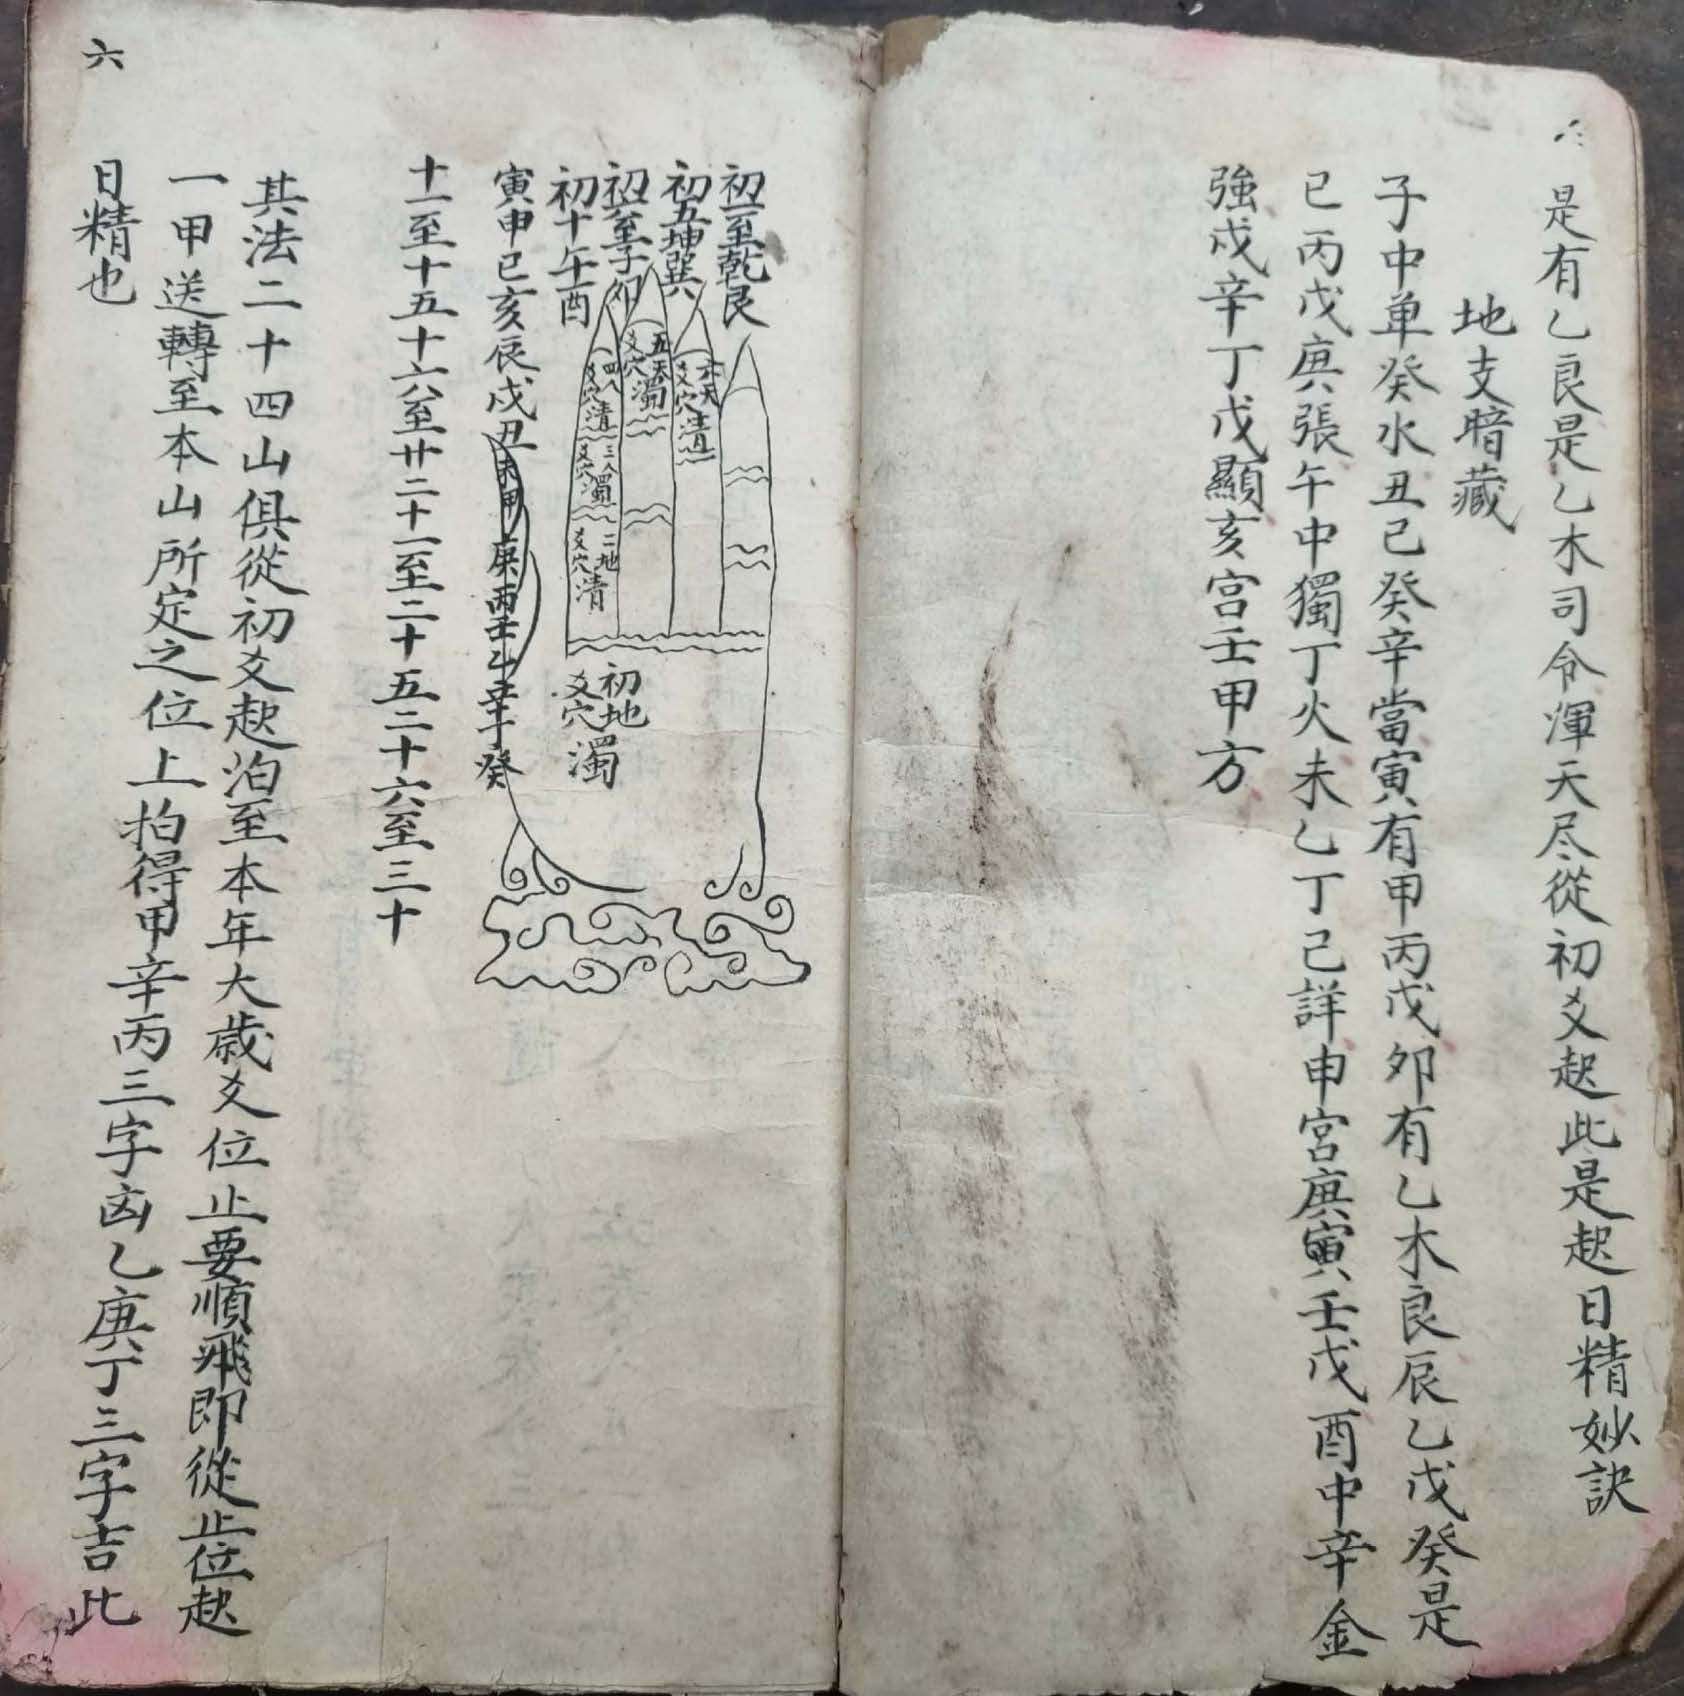 是有乙良是乙木司令渾天尽從初爻起此是起日精妙訣
地支暗藏
子中单癸水丑己癸辛當寅有甲丙戊卯有乙木良辰乙戊癸是
已丙戊庚張午中獨丁火未乙丁己詳申宮庚寅壬戊酉中辛金
強戌辛丁戊顯亥宮壬甲方
六
初一至乾艮
初五坤巽
初至子卯
初十午酉
六天
爻穴清
五天
爻穴濁
四人
爻穴清
三人
爻穴濁
二地
爻穴清
初地
爻穴濁
寅申巳亥辰戌丑未甲庚丙壬乙辛丁癸
十一至十五十六至廿二十一至二十五二十六至三十
其法二十四山俱從初爻起泊至本年大歳爻位止要順飛即從止位起
一甲送轉至本山所定之位上拍得甲辛丙三字凶乙庚丁三字吉此
日精也